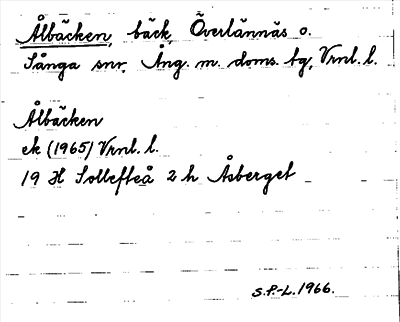 Ålbäcken, bäck, Överlännäs o.
Sånga snr, Ång. m. doms. tg, Vrnl. l.
Ålbäcken
ek (1965) Vrnl. l.
19 H Sollefteå 2 h Åsberget
S.P.-L. 1966.